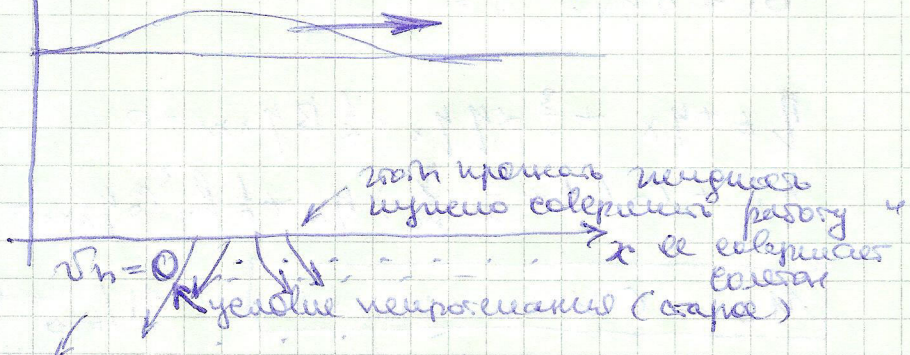 чтоб прожать жидкость
нужно совершить работу и
x ее совершает
солетон
Vn = 0
условие непротекания (старое)